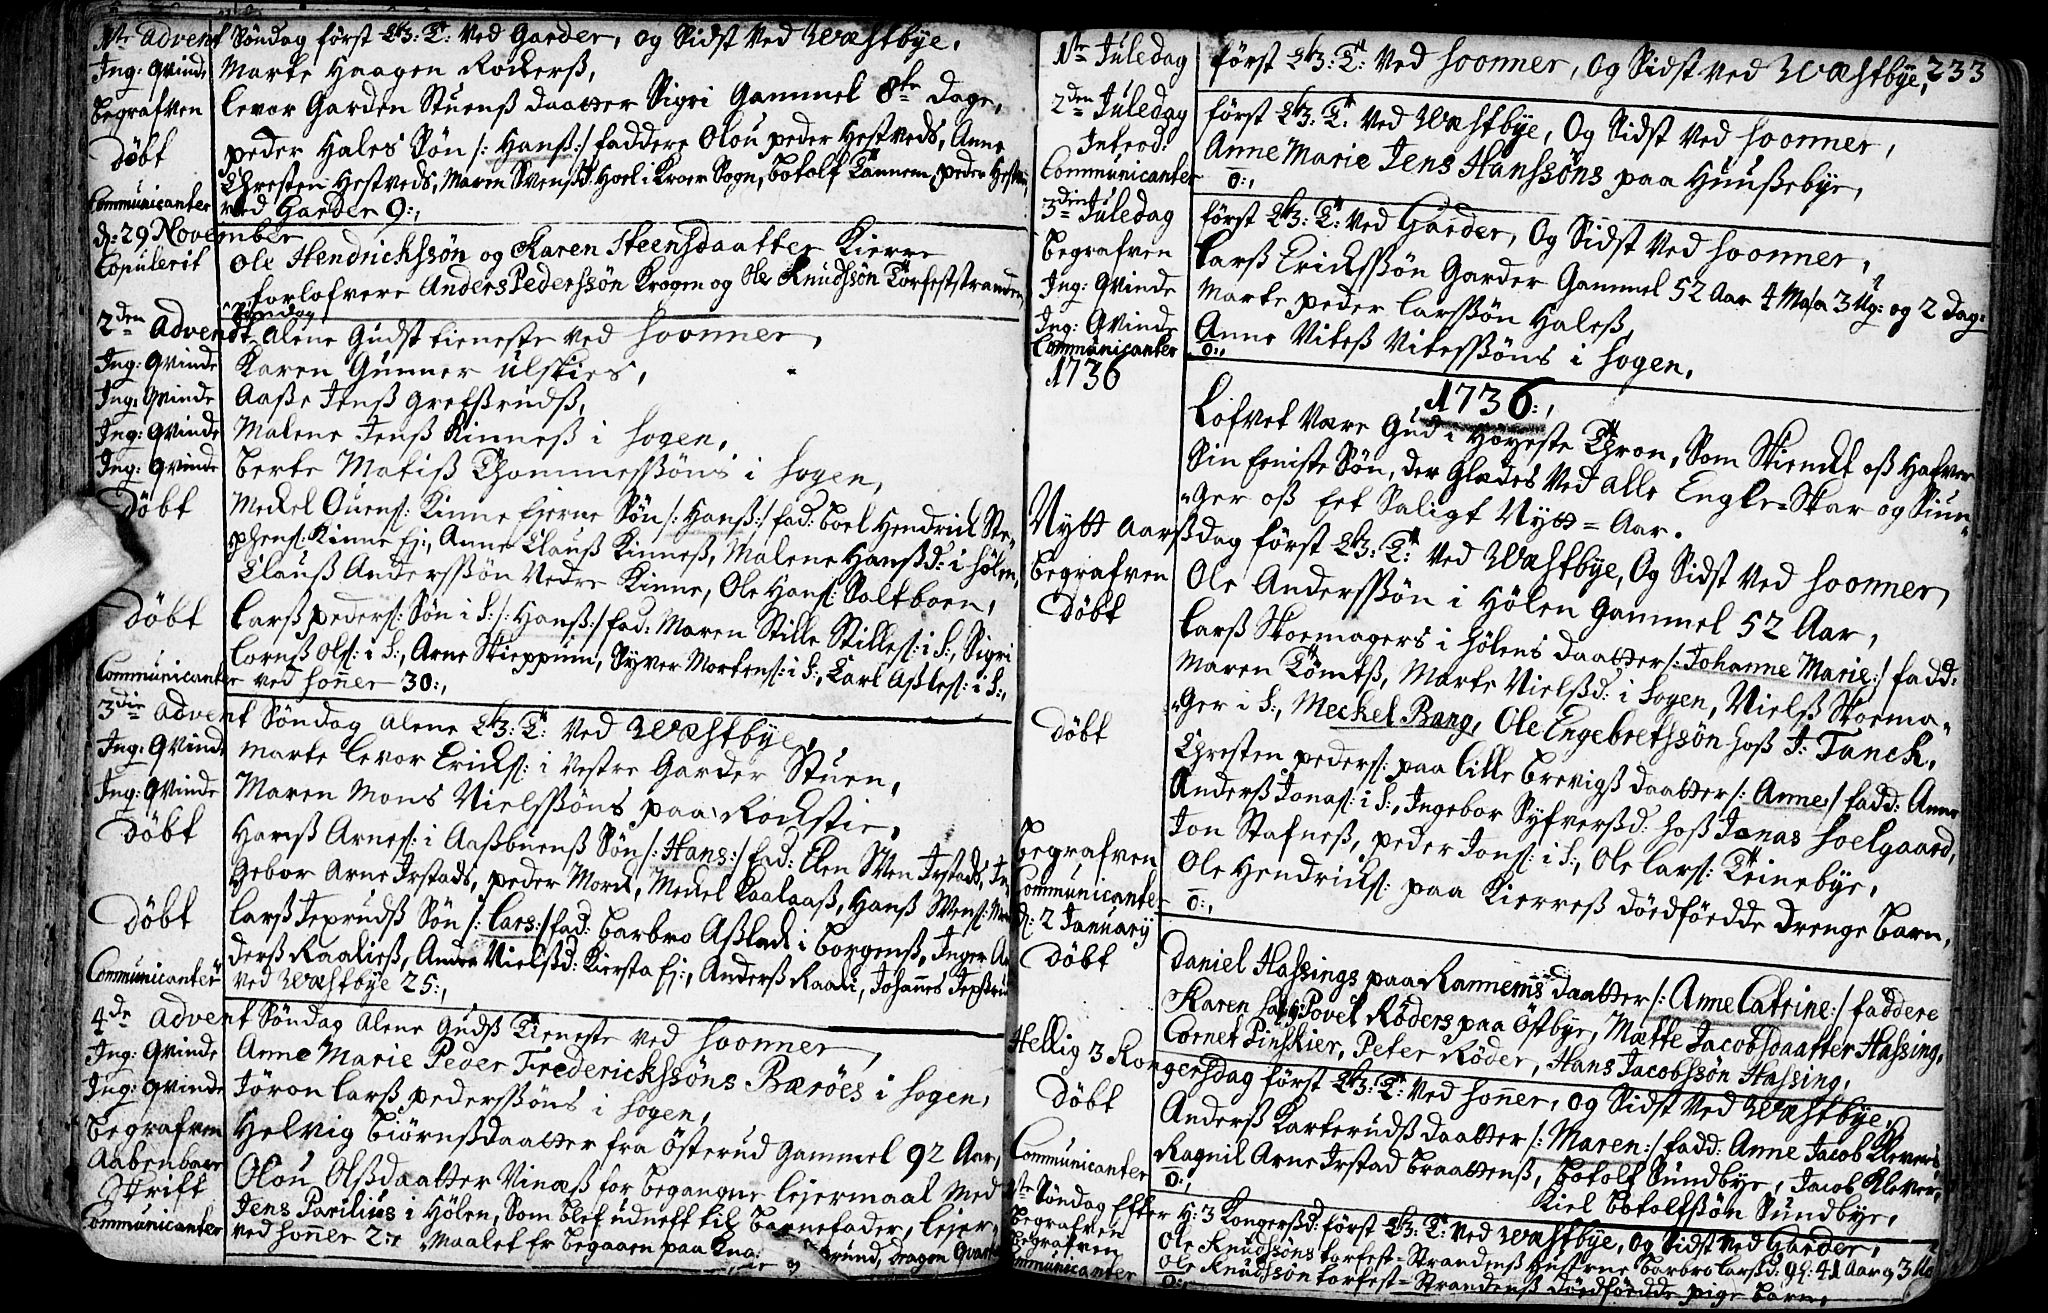 1te Advent Söndag först Ved Garder, og Sidst Ved Wæstbÿe,
Ing: Qvinde Marte Haagen Rockerß,
begrafven Levor Garden Stuenß daatter Sigri Gammel 8te Dage,
döbt peder Hales Sön /: Hanß :/ faddere Olou peder Hestveds, Anne
Chresten Hestveds, Maren Svenßd: Hoel i Kroer Sogn, Botolf Tannem, peder Hestv
Communicanter ved Garder 9:,
d: 29 November
Copulerit Ole Hendrichssön og Karen Steensdaatter Kierre
forlofvere Anders Pederssön Krogen og Ole Knudssön Torfeststranden
2den Advendt Söndag alene Gudstieneste ved Soonner,
Ing: Qvinde Karen Gunner Ulskies,
Ing: Qvinde Aaße Jenß Gretsrudß,
Ing: Qvinde Malene Jenß Kinneß i Sogen,
Ing: Qvinde Berte Matiß Thommesßöns i Sogen,
döbt Meckel Ouens: Kinne Ejerne Sön /: Hanß :/ fad: Boel Hendrick Ste
phens: Kinne Ej:, Anne Clauß Kinneß, Malene Hansßd: i Hölen,
Clauß Andersßön Nedre Kinne, Ole Hans: Saltboen,
döbt Larß peders: Sön i S: /: Hanß :/ fad: Maren Stille Stilles: i S:, Sigri
Cornß Ols: i S:, Arne Skieppum, Syver Mortens: i S:, Carl Aßles: i S:,
Communicanter ved Soñer 30:,
3die Advent Söndag alene Ved Wæstbÿe,
Ing: Qvinde Marte Levor Ericks: i Vestre Garder Stuen,
Ing: Qvinde Maren Mons Nielsßöns paa Rockstie,
döbt Hanß Arnes: i Aaßbuenß Sön /: Hans :/ fad: Elen Sven Irstads, In
gebor Arne Irstads, peder Morck, Meckel Kaalaaß, Hanß Svens:
döbt Larß Jeprudß Sön /: Lars :/ fad: Barbro Aßlack i Borgenß, Inger An
derß Raaließ, Anne Nielsßd: Kiersta Ej:, Anderß Raali, Johannes Jepsrud
Communicanter ved Wæstbÿe 25:,
4de Advent Söndag alene Gudß Tieneste ved Soonner,
Ing: Qvinde Anne Marie Peder Frederichssöns Bæröes i Sogen,
Ing: Qvinde Jöron Larß pedersßöns i Sogen,
begrafven Helvig Biörnßdaatter fra Österud Gammel 92 Aar,
Aabenbare Olou Olßdaatter Vinæß for begangne Lejermaal Med
Skrift Jens Parilius i Hölen, Som blef udneft til Barnefader, Lejer-
Communicanter ved Soñer 2:, Maalet er begaaen paa Grund, Dragon
1te Juledag först Ved Soonner, Og Sidst ved Wæstbÿe, 233
2den Juledag först Ved Wæstbÿe, Og Sidst Ved Soonner,
Introd: Anne Marie Jens Hanssöns paa Huußebÿe,
Communicanter 0:,
3den Juledag först Ved Garder, Og Sidst Ved Soonner,
begrafven Larß Ericksßön Garder Gammel 52 Aar 4 Ma 3 Ug: og 2 dag:
Ing: Qvinde Marte peder Larsßön Haleß,
Ing: Qvinde Anne Viteß Vitesßöns i Sogen,
Communicanter 0:,
1736
1736:,
Lofvet Være Gud i Höyeste Thron, Som Skienckt oß Hafver
Sin Eeniste Sön, der Glædes Ved alle Engle=Skar og Siun-
ger oß Eet Saligt Nytt=Aar.
Nytt Aarßdag först Ved Wæstbÿe, Og Sidst Ved Soonner,
begrafven Ole Andersßön i Hölen Gammel 52 Aar,
döbt Larß Skoemagers i Hölens daatter /: Johanne Marie :/ fadd:
Maren Tömtß, Marte Nielsßd: i Sogen, Nielß Skoema-
ger i S:, Meckel Bang, Ole Engebretssön hoß J: Tanck,
döbt Chresten peders: paa Lille Brevigß daatter /: Anne :/ fadd: Anne
Anderß Jonas: i S:, Ingebor Syfversßd: hoß Jonas Soelgaard,
Jon Stafneß, peder Jons: i S:, Ole Lars: Teinebÿe,
begrafven Ole Hendricks: paa Kierreß dödföedde Drenge Barn,
Communicanter 0:,
d: 2 January
döbt Daniel Hassings paa Rannems daatter /: Anne Catrine :/ faddere
Karen Povel Röders paa Östbye, Mætte Jacobsdaatter Hassing,
Cornet Pinskier, Peter Röder, Hans Jacobssön Hassing,
Hellig 3 Kongersdag först Ved Soñer, og Sidst Ved Wæstbÿe,
döbt Anderß Karterudß daatter /: Maren :/ fadd: Anne Jacob Klevers
Ragnil Arne Irstad Braattenß, Botolf Sundbÿe, Jacob Klever,
Kiel Botolfsßön Sundbÿe,
Communicanter 0:,
1te Söndag Efter H: 3 Kongersßd: först Ved Wæstbÿe, Og Sidst Ved Garder,
begrafven Ole Knudssöns Torfest=Strandenß Hustrue Barbro Larsßd: gl: 41 Aar
begrafven Ole Knudssön Torfest=Strandenß dödföedde pige Barn,
Communicanter 0:,